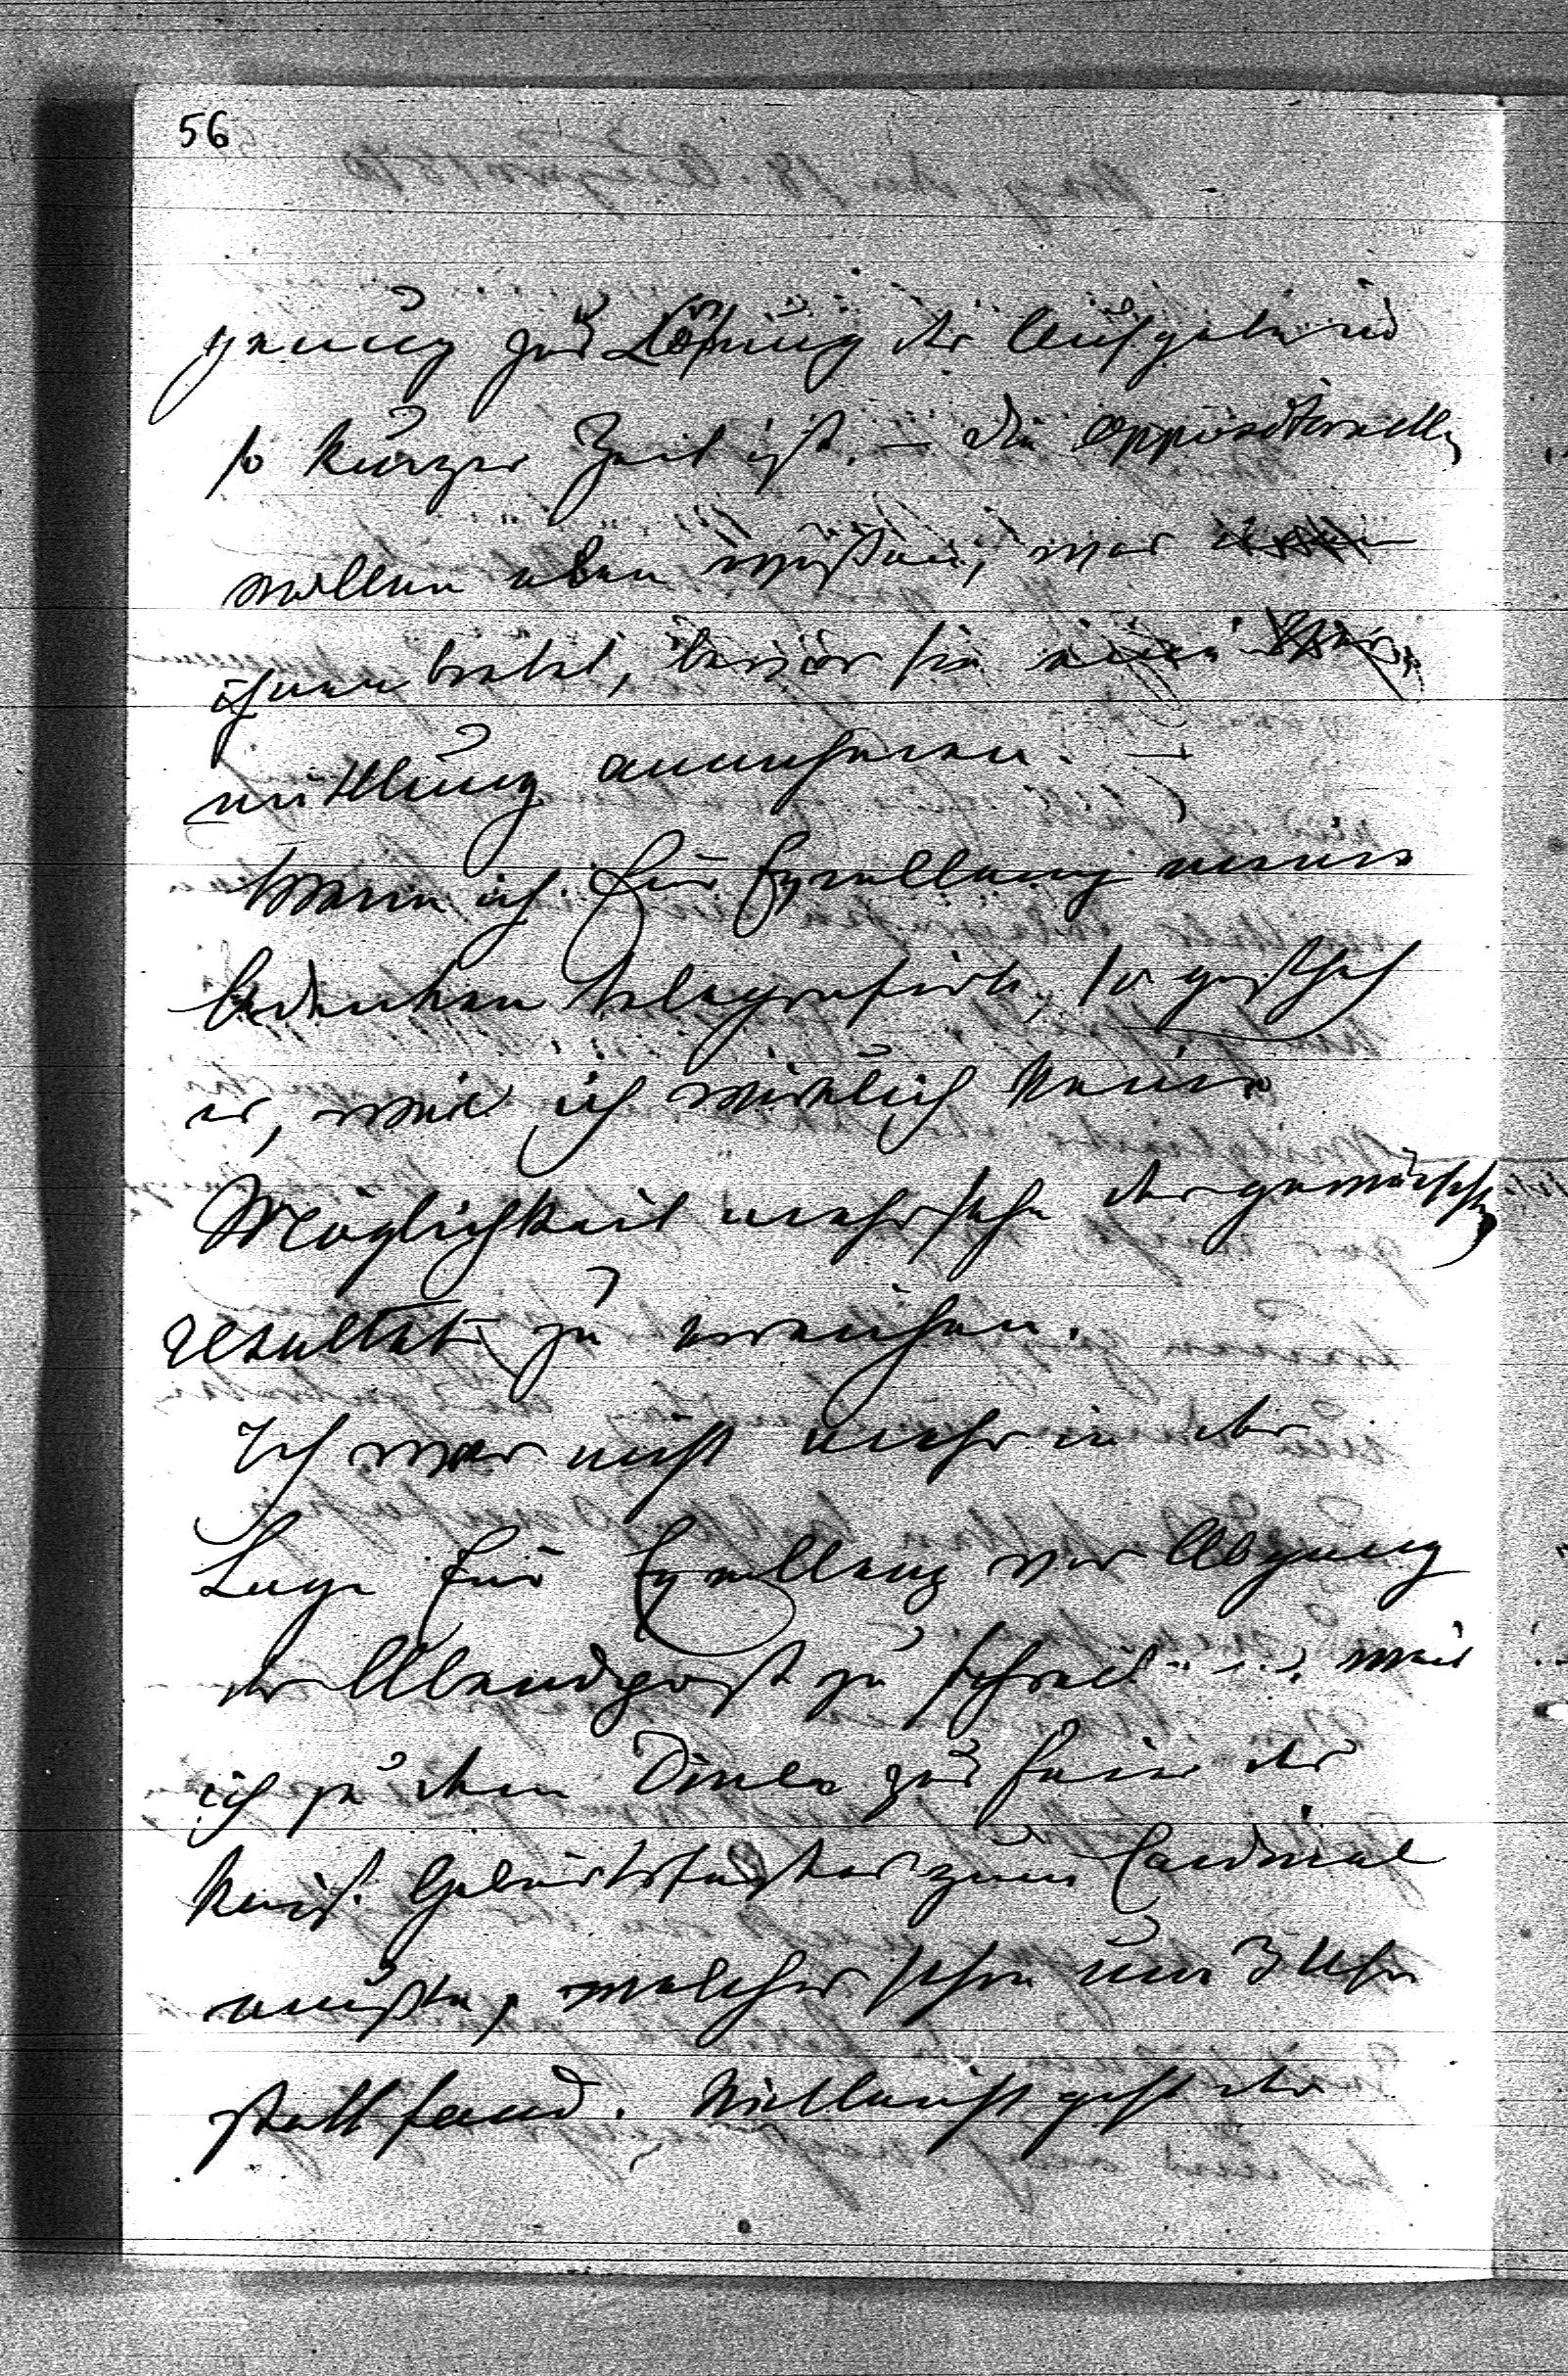 56
genug zur Lösung der Aufgabe in
so kurzer Zeit ist. – Die oppositionellen
wollen eben wissen, wer
ihnen bietet, bevor sie eine Ver-
mittlung annehmen. –
Wenn ich Eur Exzellenz meine
Bedenken telegrafirte, so geschah
es, weil ich wirklich keine
Möglichkeit mehr sehe das gewünschte
Resultat zu erreichen.
Ich war nicht mehr in der
Lage Eur Exzellenz vor Abgang
der Abendpost zu weil
ich zu dem Diner zur Feier des
Kais. Geburtsfestes zum Cardinal
mußte, welches schon um 3 Uhr
stattfand. Vielleicht geht der